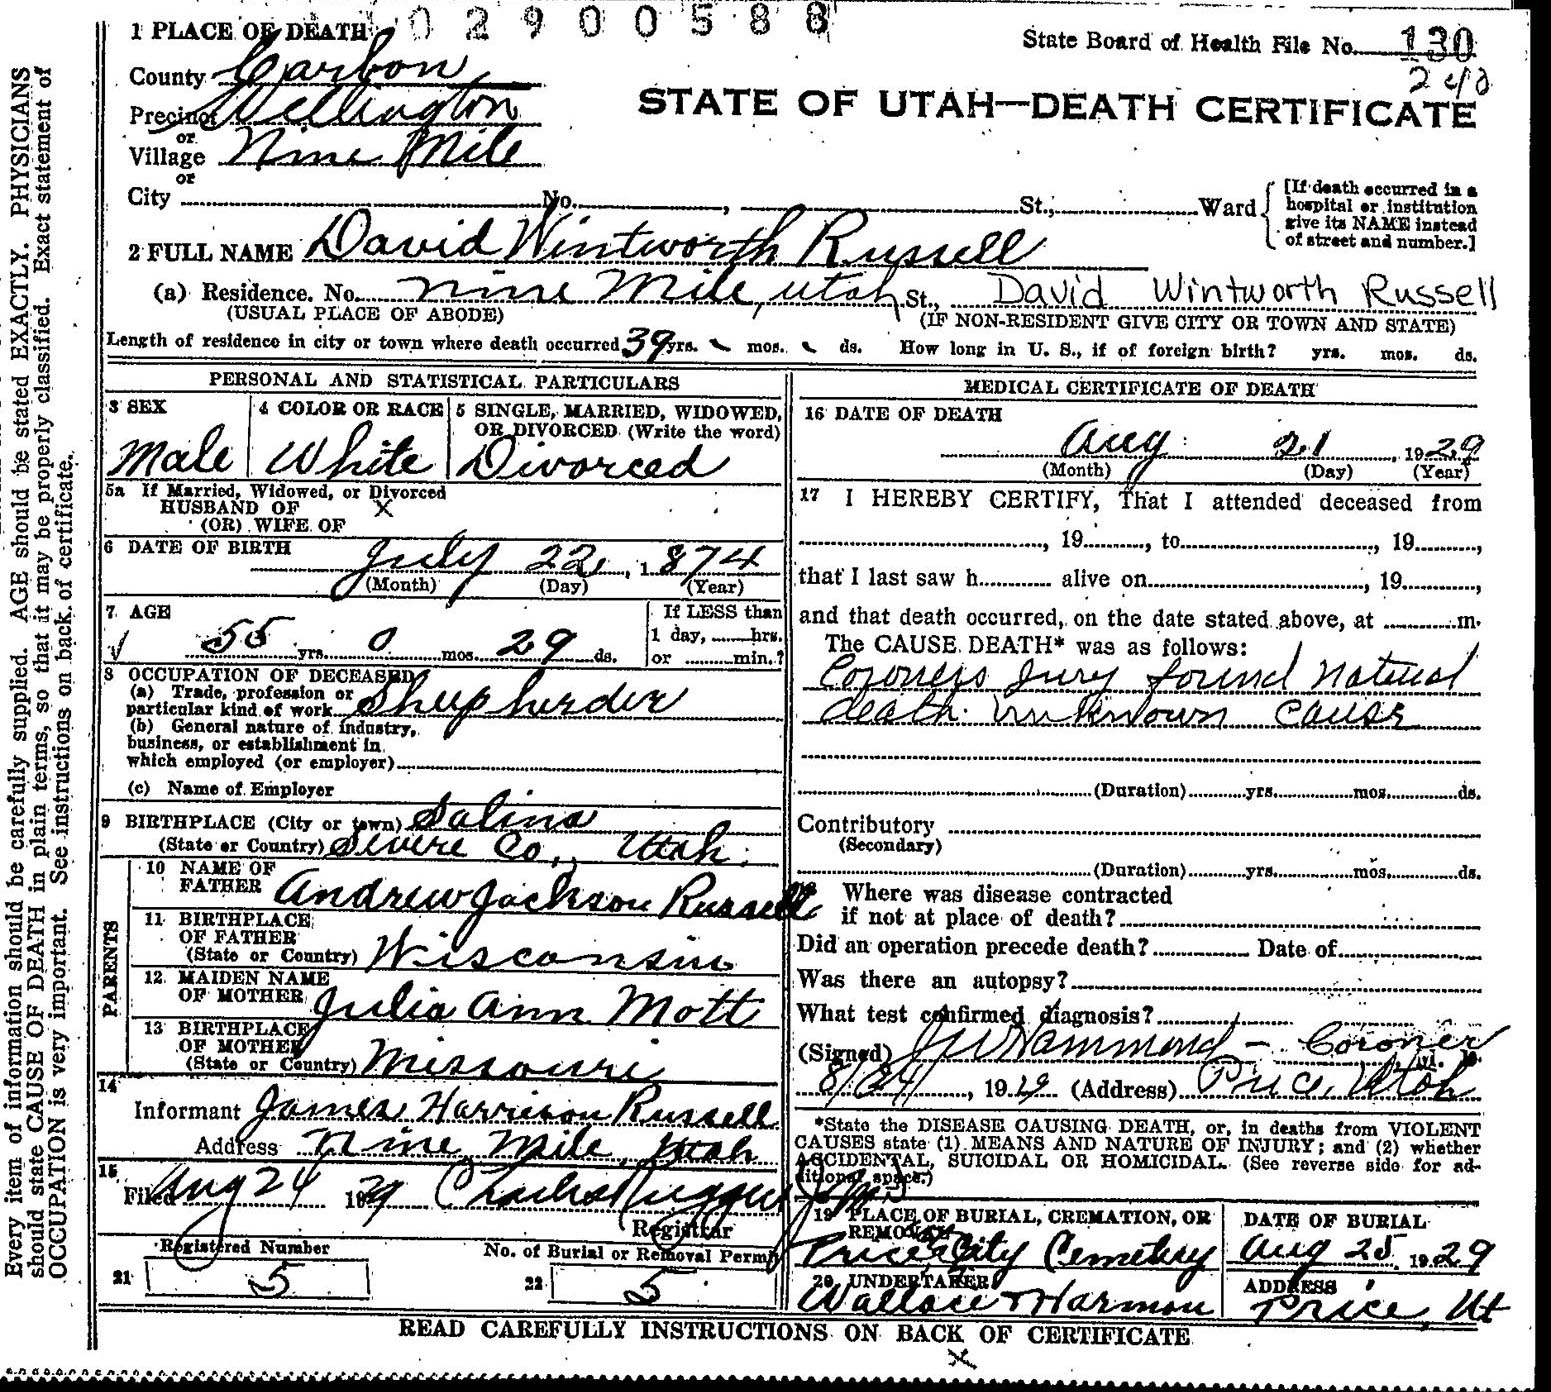 02900588
1 PLACE OF DEATH
State Board of Health File No. 130
240
County Carbon
STATE OF UTAH—DEATH CERTIFICATE
Precinct Wellington
or
Village Nine Mile
or
City No. , St., Ward
[If death occurred in a
hospital or institution
give its NAME instead
of street and number.]
2 FULL NAME David Wintworth Russell
(a) Residence. No. Nine Mile, Utah St., David Wintworth Russell
(USUAL PLACE OF ABODE) (IF NON-RESIDENT GIVE CITY OR TOWN AND STATE)
Length of residence in city or town where death occurred 39 yrs. mos. ds. How long in U. S., if of foreign birth? yrs. mos. ds.
PERSONAL AND STATISTICAL PARTICULARS
3 SEX 4 COLOR OR RACE 5 SINGLE, MARRIED, WIDOWED,
OR DIVORCED (Write the word)
Male White Divorced
5a If Married, Widowed, or Divorced
HUSBAND OF X
(OR) WIFE OF
6 DATE OF BIRTH July 22, 1874
(Month) (Day) (Year)
7 AGE If LESS than
55 yrs. 0 mos. 29 ds. 1 day, hrs.
or min.?
8 OCCUPATION OF DECEASED
(a) Trade, profession or
particular kind of work Sheep herder
(b) General nature of industry,
business, or establishment in
which employed (or employer)
(c) Name of Employer
9 BIRTHPLACE (City or town) Salina
(State or Country) Severe Co., Utah.
PARENTS
10 NAME OF
FATHER Andrew Jackson Russell
11 BIRTHPLACE
OF FATHER
(State or Country) Wisconsin
12 MAIDEN NAME
OF MOTHER Julia Ann Mott
13 BIRTHPLACE
OF MOTHER
(State or Country) Missouri
14
Informant James Harrison Russell
Address Nine Mile, Utah
15
Filed Aug 24 1929 Charles Ruggeri
Registrar
Registered Number No. of Burial or Removal Permit
21 5 22 5
MEDICAL CERTIFICATE OF DEATH
16 DATE OF DEATH
Aug 21, 1929
(Month) (Day) (Year)
17 I HEREBY CERTIFY, That I attended deceased from
, 19 , to , 19 ,
that I last saw h alive on , 19 ,
and that death occurred, on the date stated above, at m.
The CAUSE DEATH* was as follows:
Coroners Jury found Natural
death. Unknown cause
(Duration) yrs. mos. ds.
Contributory
(Secondary)
(Duration) yrs. mos. ds.
18 Where was disease contracted
if not at place of death?
Did an operation precede death? Date of
Was there an autopsy?
What test confirmed diagnosis?
(Signed) J W Hammond - Coroner
8/24/, 1929 (Address) Price, Utah
*State the DISEASE CAUSING DEATH, or, in deaths from VIOLENT
CAUSES state (1) MEANS AND NATURE OF INJURY; and (2) whether
ACCIDENTAL, SUICIDAL OR HOMICIDAL. (See reverse side for ad-
ditional space.)
19 PLACE OF BURIAL, CREMATION, OR DATE OF BURIAL
REMOVAL
Price City Cemetery Aug 25, 1929
20 UNDERTAKER ADDRESS
Wallace & Harmon Price, Ut
READ CAREFULLY INSTRUCTIONS ON BACK OF CERTIFICATE
X
Every item of information should be carefully supplied. AGE should be stated EXACTLY. PHYSICIANS
should state CAUSE OF DEATH in plain terms, so that it may be properly classified. Exact statement of
OCCUPATION is very important. See instructions on back of certificate.